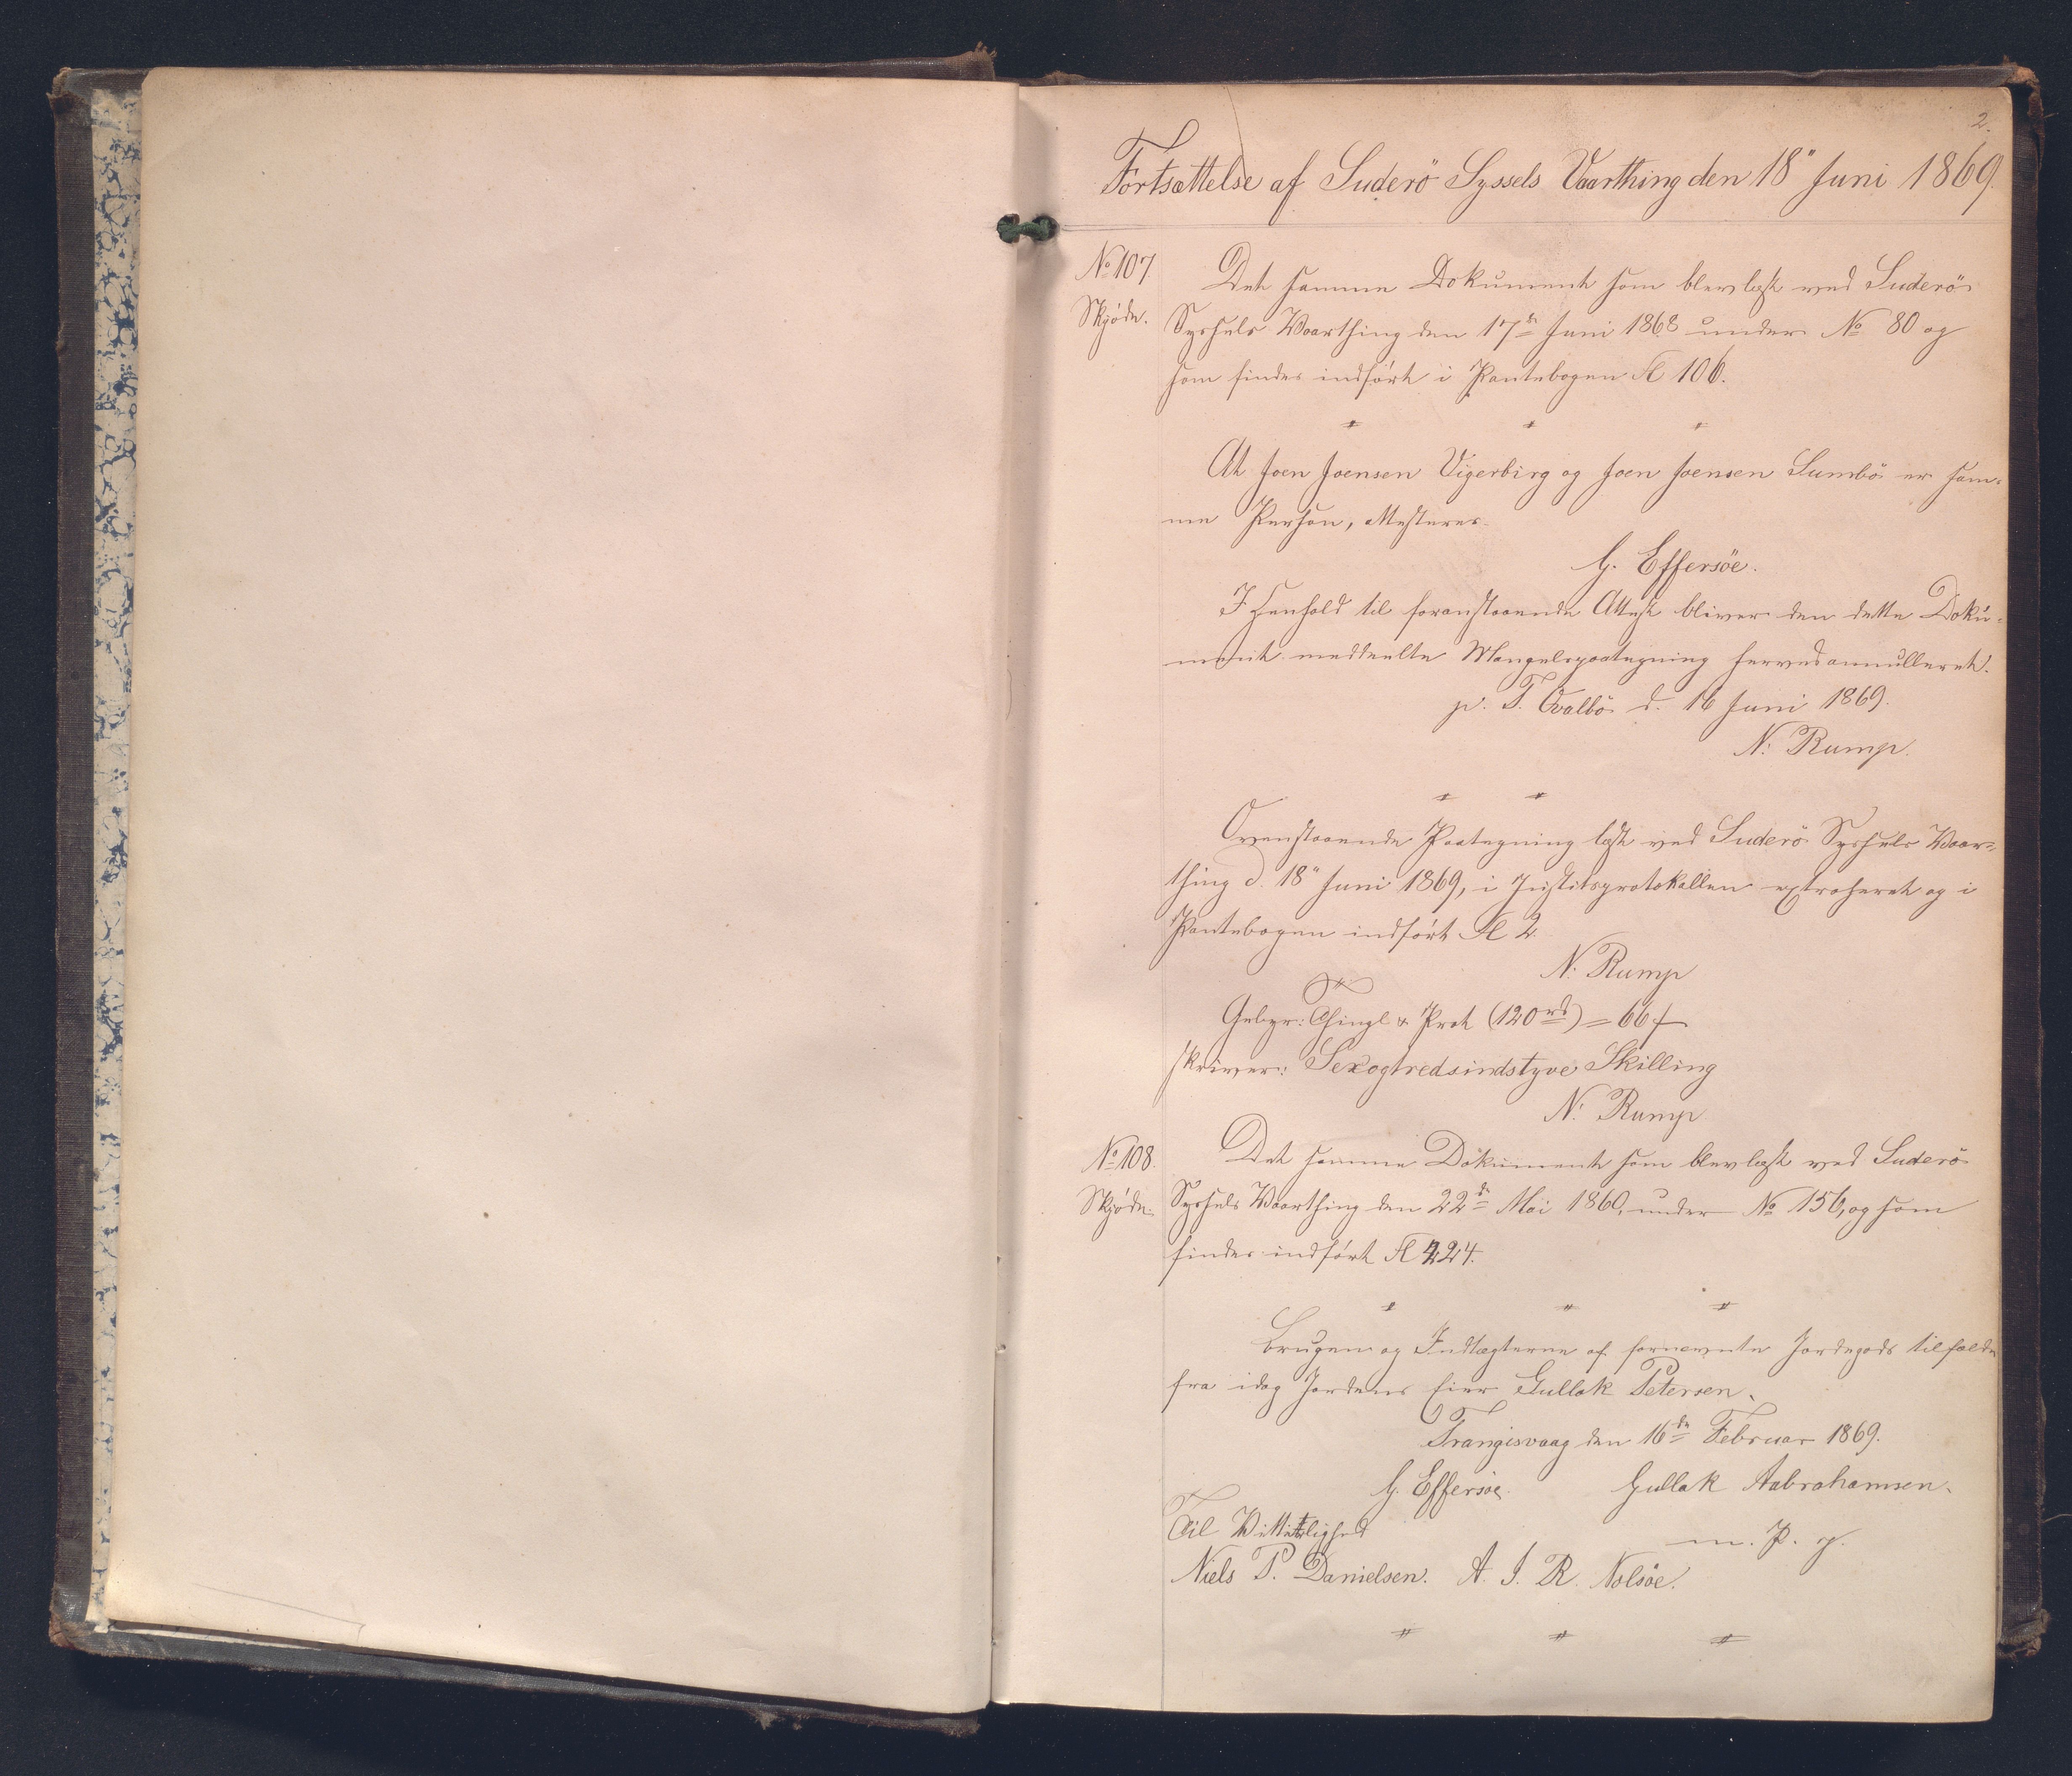 2.
Fortsættelse af Suderö Syssels Vaarthing den 18" Juni 1869.
No 107.
Skjöde.
Det samme Dokument som blev læst ved Suderö
Syssels Vaarthing den 17de Juni 1868 under No 80 og
som findes indført i Pantebogen Fl 106.
At Joen Joensen Vigerbirg og Joen Joensen Sumbö er sam-
me Person, attesteres.
G. Effersöe.
I Henhold til foranstaaende Attest bliver den dette Doku-
ment meddeelte Mangelspaategning herved annulleret.
p. T. Qvalbö d. 16 Juni 1869.
N: Rump.
Ovenstaaende Paategning læst ved Suderö Syssels Vaar-
thing d. 18" Juni 1869, i Justitsprotokollen extraheret og i
Pantebogen indført Fl 2.
N: Rump
Gebyr: Thingl & Prot (120 rd) = 66 ß
skriver: Sexogtredsindstyve Skilling
N: Rump
No 108.
Skjöde.
Det samme Dokument som blev læst ved Suderö
Syssels Vaarthing den 22de Mai 1860, under No 156, og som
findes indført Fl 224.
Brugen og Indtægterne af fornævnte Jordegods tilfalde
fra idag Jordens Eier Gullak Petersen.
Trangisvaag den 16de Februar 1869.
G. Effersöe. Gullak Aabrahamsen.
m. P. g.
Til Vitterlighed
Niels P. Danielsen. A. J. R. Nolsöe.